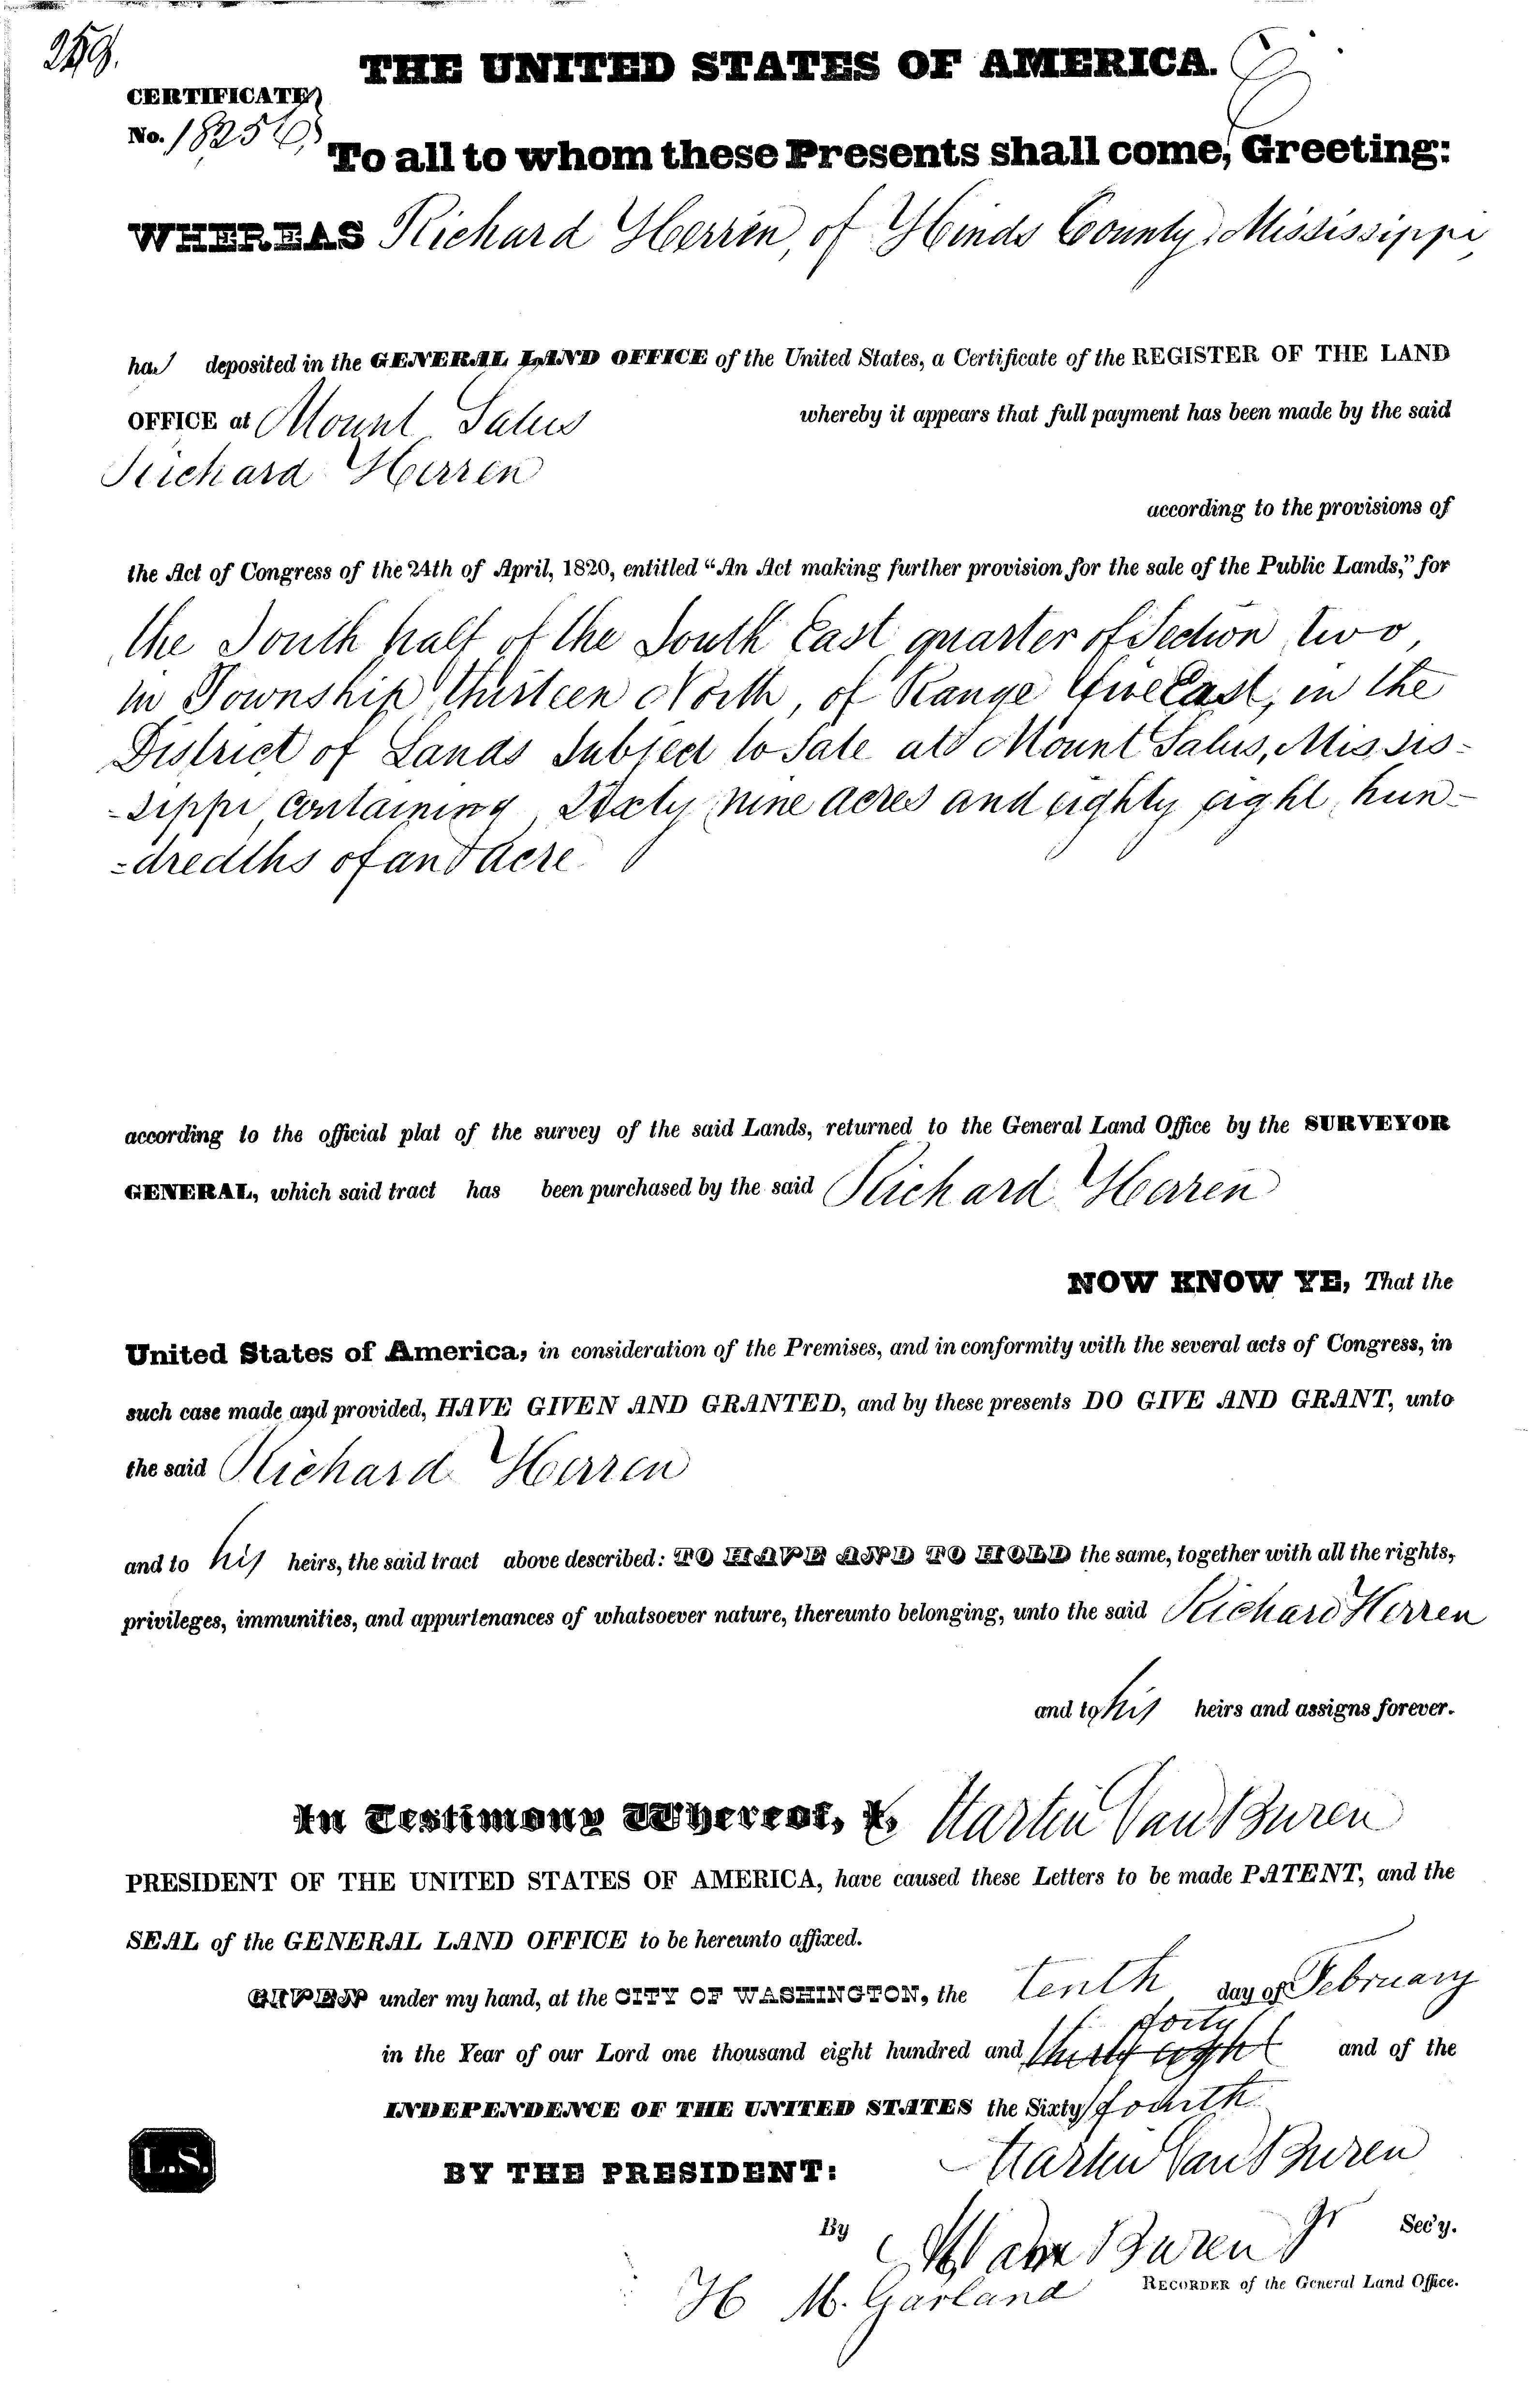 249.
THE UNITED STATES OF AMERICA.
CERTIFICATE
No. 18256
To all to whom these Presents shall come, Greeting:
WHEREAS Richard Herren, of Hinds County, Mississippi,
has deposited in the GENERAL LAND OFFICE of the United States, a Certificate of the REGISTER OF THE LAND
OFFICE at Mount Salus whereby it appears that full payment has been made by the said
Richard Herren
according to the provisions of
the Act of Congress of the 24th of April, 1820, entitled “An Act making further provision for the sale of the Public Lands,” for
the South half of the South East quarter of Section two,
in Township thirteen North, of Range five East, in the
District of Lands Subject to Sale at Mount Salus, Missis-
-sippi containing Sixty nine acres and eighty eight hun-
-dredths of an acre
according to the official plat of the survey of the said Lands, returned to the General Land Office by the SURVEYOR
GENERAL, which said tract has been purchased by the said Richard Herren
NOW KNOW YE, That the
United States of America, in consideration of the Premises, and in conformity with the several acts of Congress, in
such case made and provided, HAVE GIVEN AND GRANTED, and by these presents DO GIVE AND GRANT, unto
the said Richard Herren
and to his heirs, the said tract above described: TO HAVE AND TO HOLD the same, together with all the rights,
privileges, immunities, and appurtenances of whatsoever nature, thereunto belonging, unto the said Richard Herren
and to his heirs and assigns forever.
In Testimony Whereof, I, Martin Van Buren
PRESIDENT OF THE UNITED STATES OF AMERICA, have caused these Letters to be made PATENT, and the
SEAL of the GENERAL LAND OFFICE to be hereunto affixed.
GIVEN under my hand, at the CITY OF WASHINGTON, the tenth day of February
forty
in the Year of our Lord one thousand eight hundred and thirty eight and of the
INDEPENDENCE OF THE UNITED STATES the Sixty fourth
L.S.
BY THE PRESIDENT: Martin Van Buren
By M Van Buren Jr Sec'y.
H M. Garland RECORDER of the General Land Office.